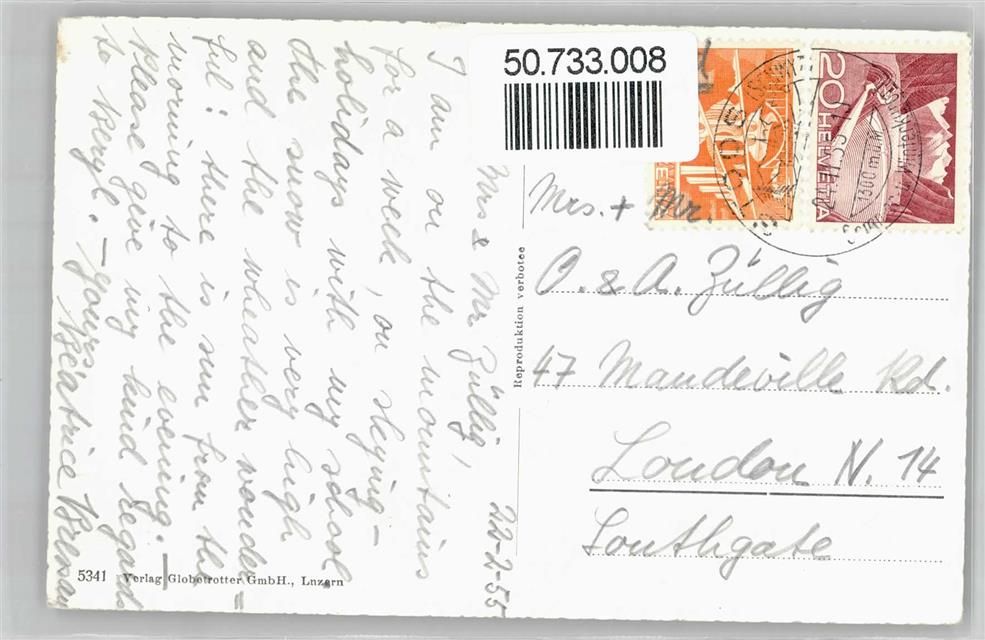 50.733.008
22-2-55
Mrs & Mr Züllig,
I am on the mountains
for a week, on skying-
holidays with my school
the snow is very high
and the wheather wonder=
ful: there is sun from the
morning to the evening. -
Please give my kind regards
to Beryl. - Yours
Béatrice
Reproduktion verboten
5341 Verlag Globetrotter GmbH., Luzern
20 HELVETIA
1300 m.ü.M.
Mrs. + Mr.
O. & A. Züllig
47 Mandeville Rd.
London N. 14
Southgate